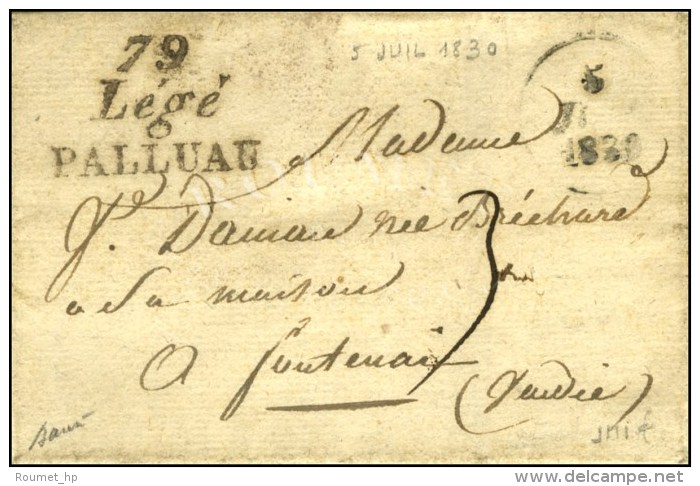 79
Légé
PALLUAU
5 JUIL 1830
5
1830
Madame
Vᵉ. Daniau née Bréchard
a Sa maison
a fontenai
(Vendée)
Roumet_hp
www.delcampe.net